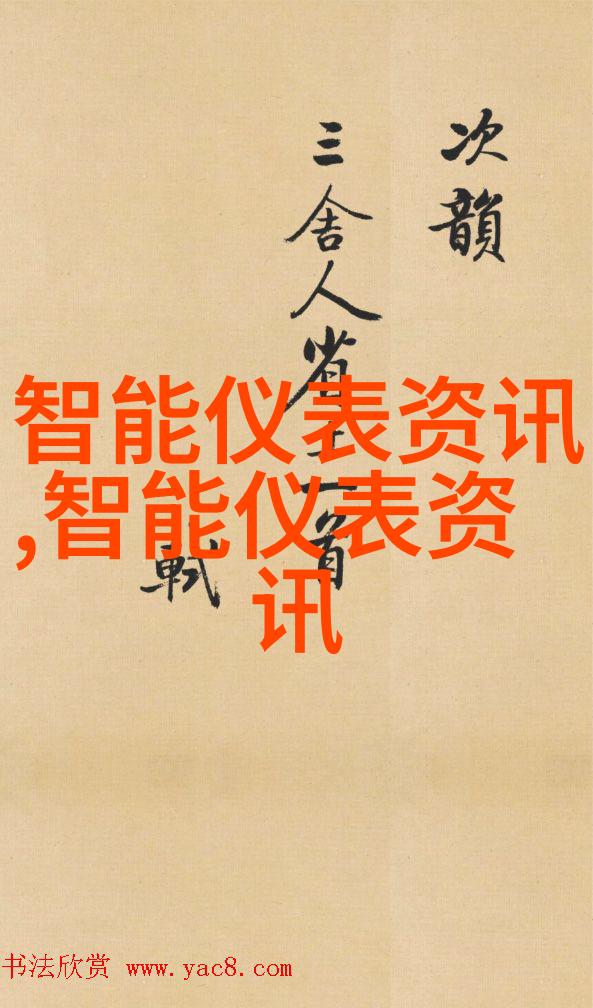 次韻
三舍人省上一首
軾
智能仪表资讯
,智能仪表资
讯
书法欣赏 www.yac8.com